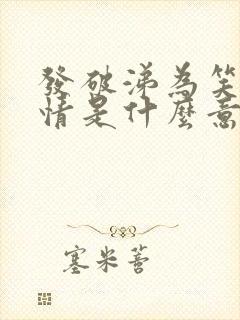 發破涕為笑
情是什麼意
塞米蒼